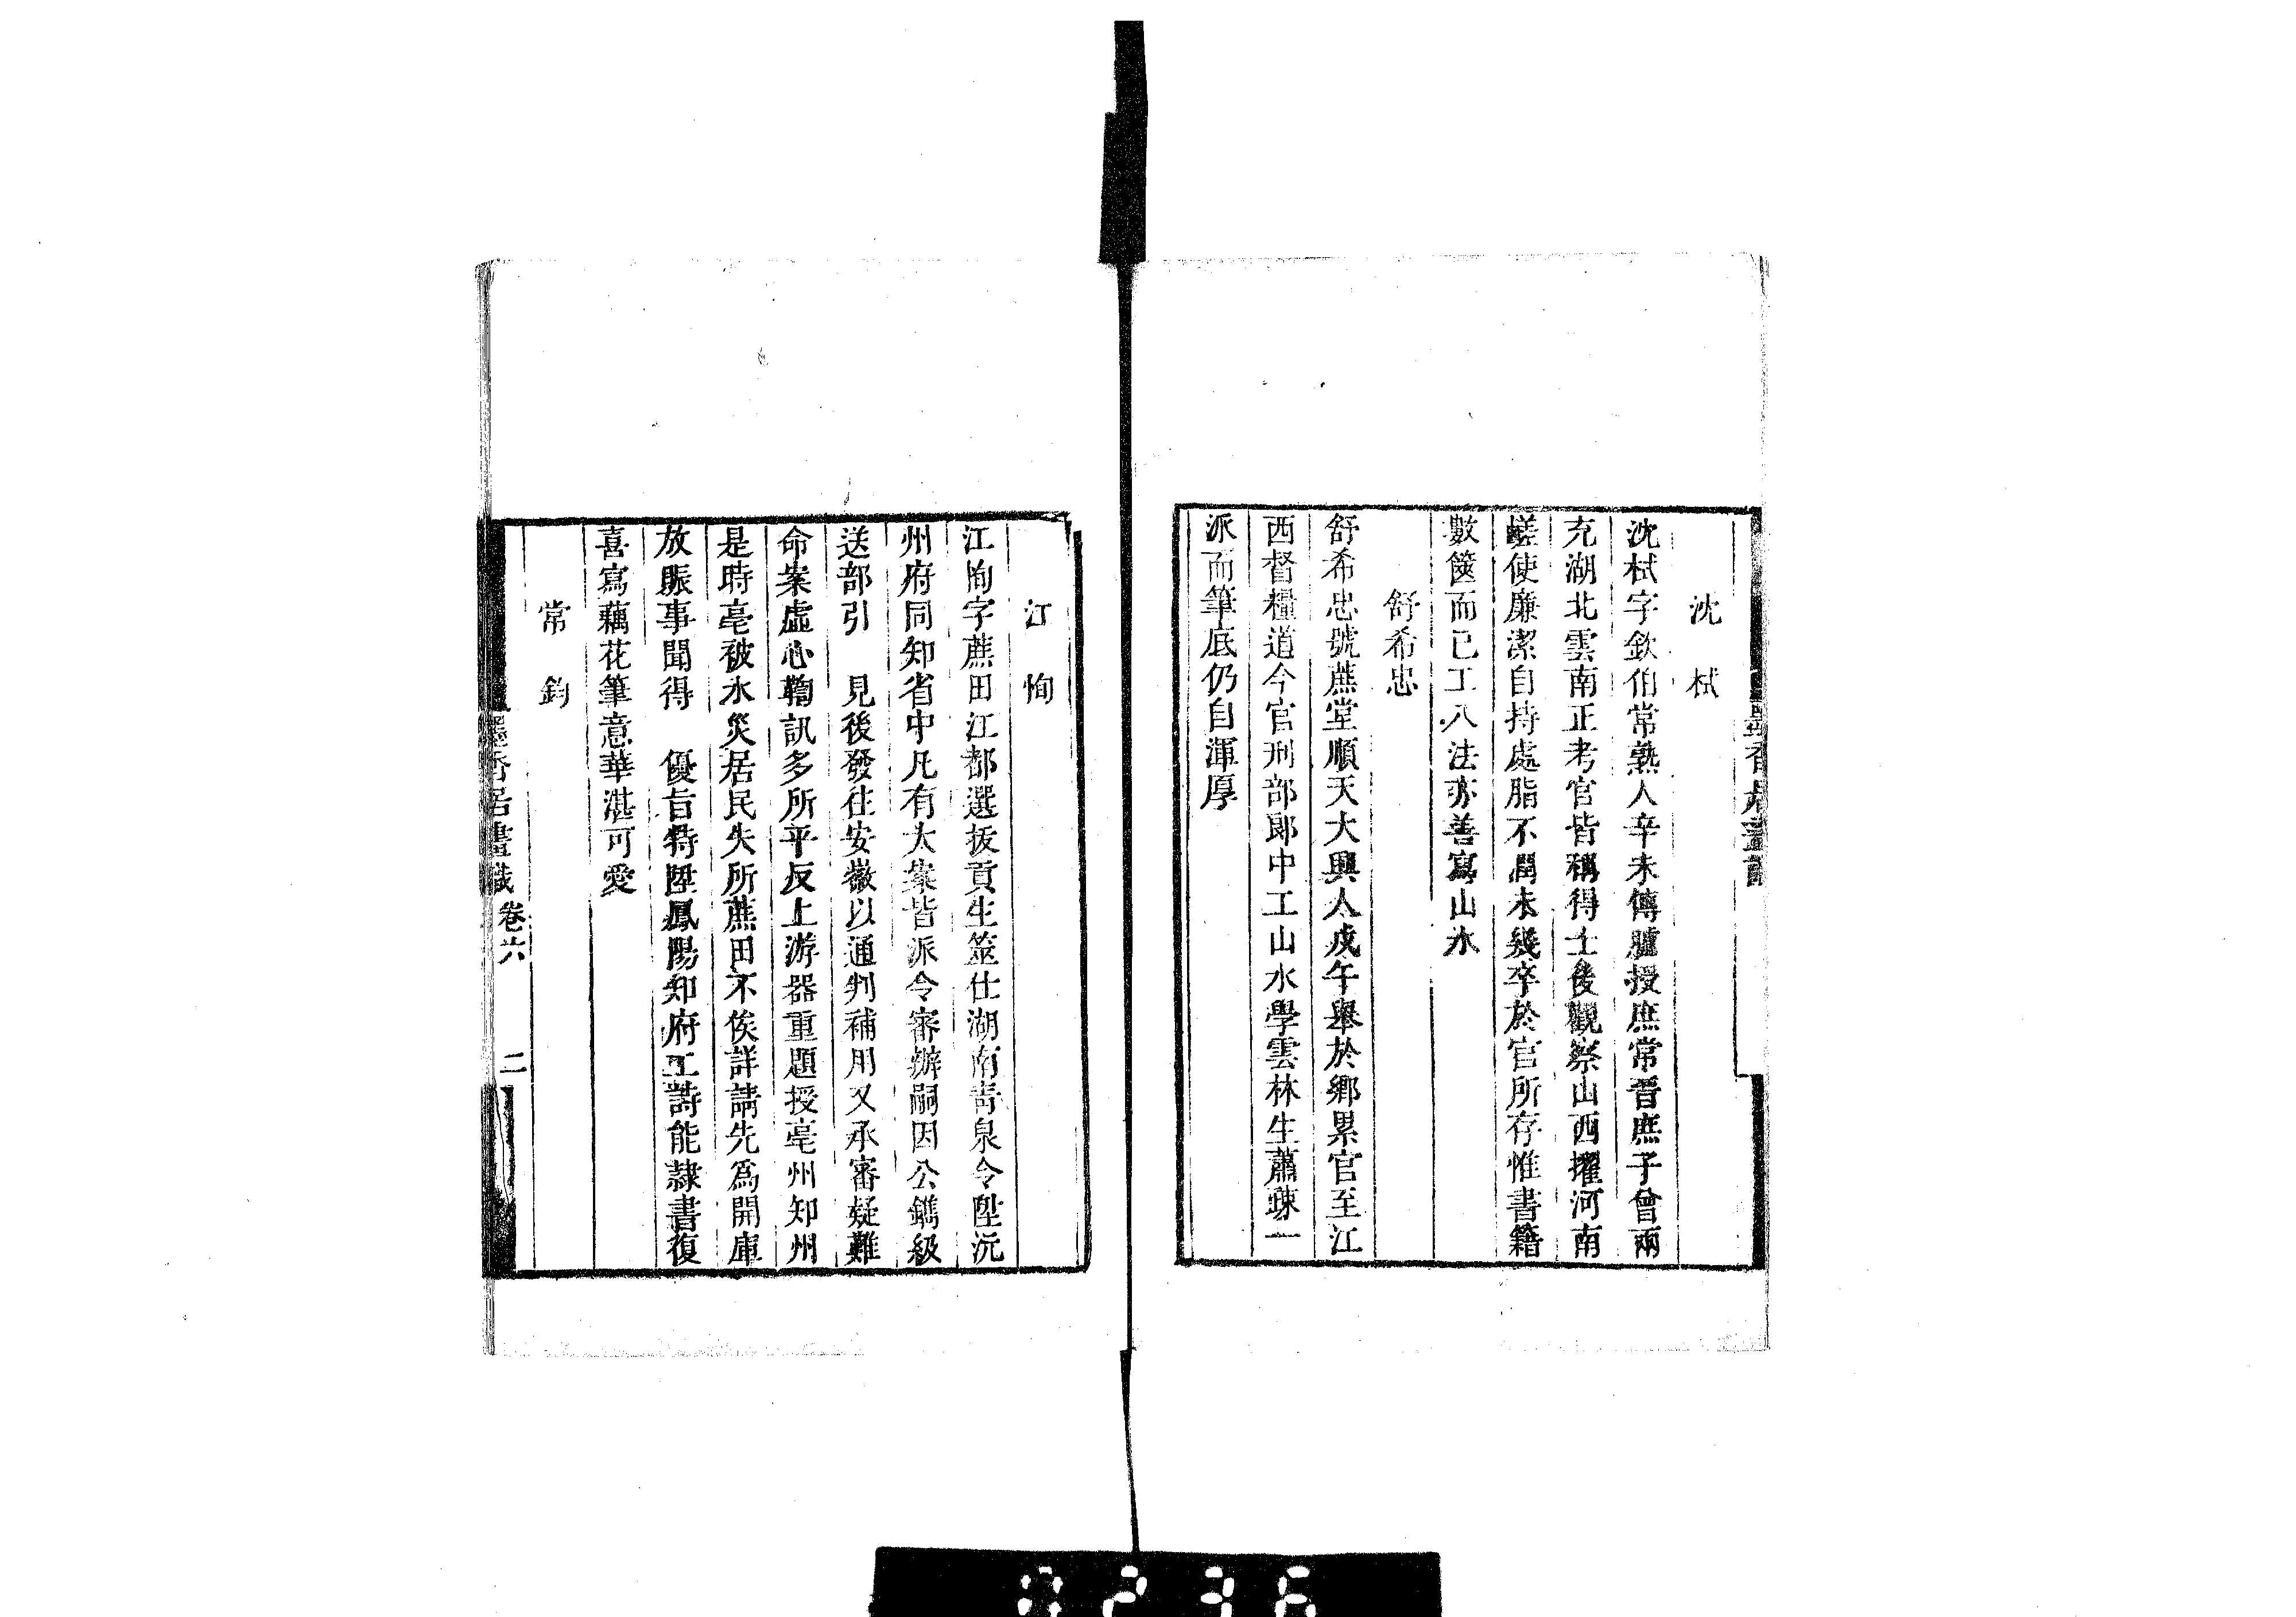 沈栻
沈栻字欽伯常熟人辛未傳臚授庶常晋庶子曾兩
充湖北雲南正考官皆稱得士後觀察山西擢河南
鹺使廉潔自持處脂不潤未幾卒於官所存惟書籍
數篋而已工八法亦善寫山水
舒希忠
舒希忠號蔗堂順天大興人戊午舉於鄉累官至江
西督糧道今官刑部郎中工山水學雲林生蕭疎一
派而筆底仍自渾厚
江恂
江恂字蔗田江都選拔貢生筮仕湖南青泉令陞沅
州府同知省中凡有大案皆派令審辦嗣因公鐫級
送部引　見後發往安徽以通判補用又承審疑難
命案虛心鞫訊多所平反上游器重題授亳州知州
是時亳被水災居民失所蔗田不俟詳請先爲開庫
放賑事聞得　優旨特陞鳳陽知府工詩能隷書復
喜寫藕花筆意華湛可愛
常鈞
墨香居畫識 卷六 二